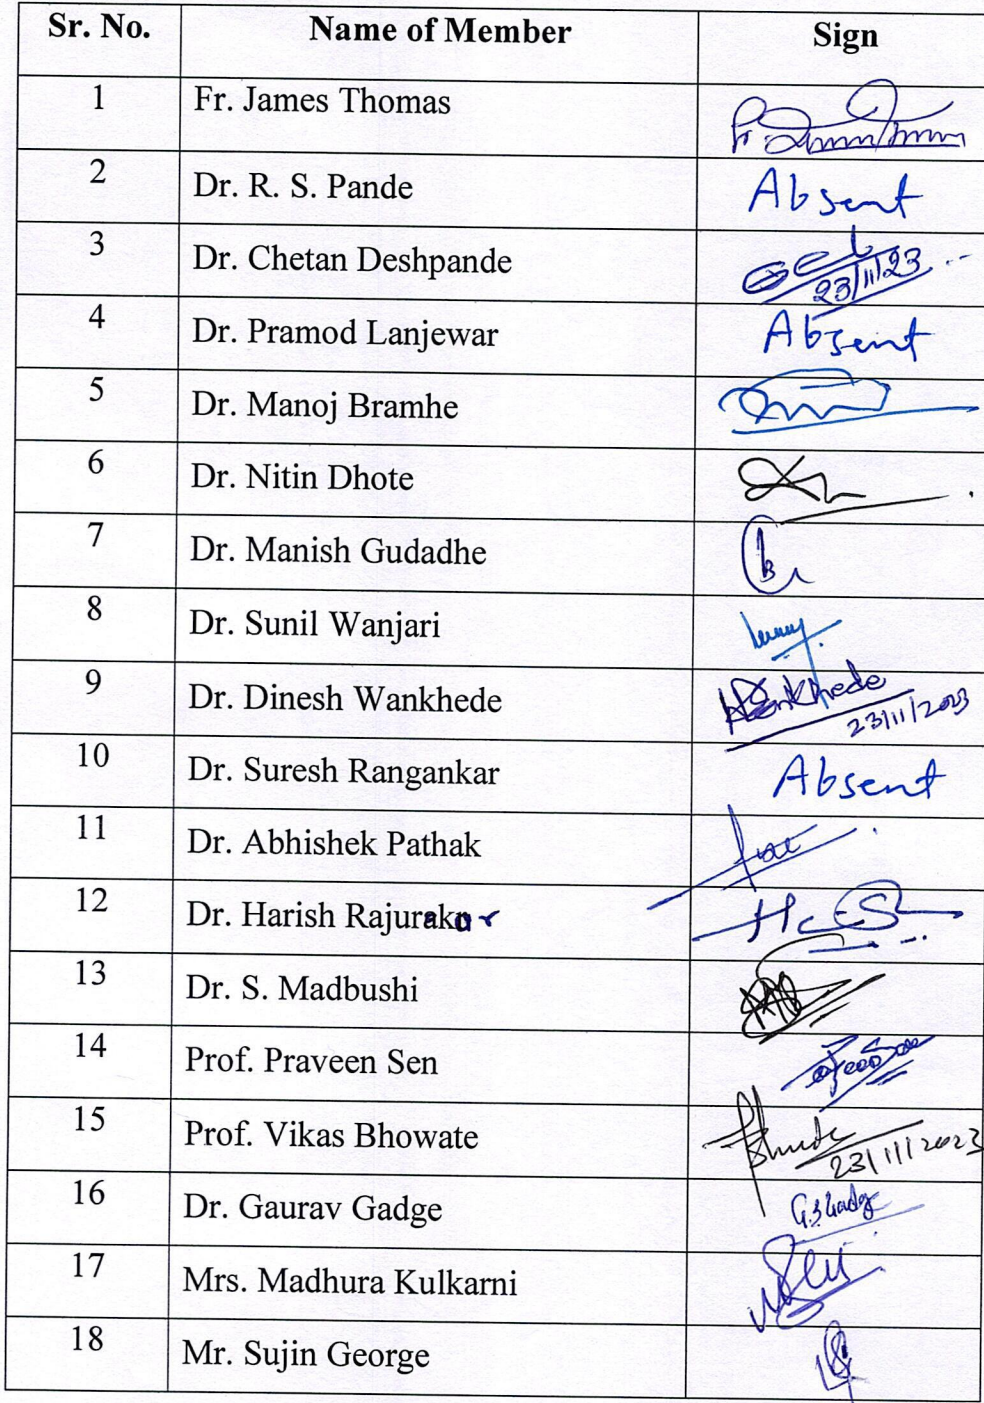 Sr. No. Name of Member Sign
1 Fr. James Thomas
2 Dr. R. S. Pande Absent
3 Dr. Chetan Deshpande 23/11/23
4 Dr. Pramod Lanjewar Absent
5 Dr. Manoj Bramhe
6 Dr. Nitin Dhote
7 Dr. Manish Gudadhe
8 Dr. Sunil Wanjari
9 Dr. Dinesh Wankhede Wankhede 23/11/2023
10 Dr. Suresh Rangankar Absent
11 Dr. Abhishek Pathak
12 Dr. Harish Rajurakar
13 Dr. S. Madbushi
14 Prof. Praveen Sen
15 Prof. Vikas Bhowate 23/11/2023
16 Dr. Gaurav Gadge
17 Mrs. Madhura Kulkarni
18 Mr. Sujin George